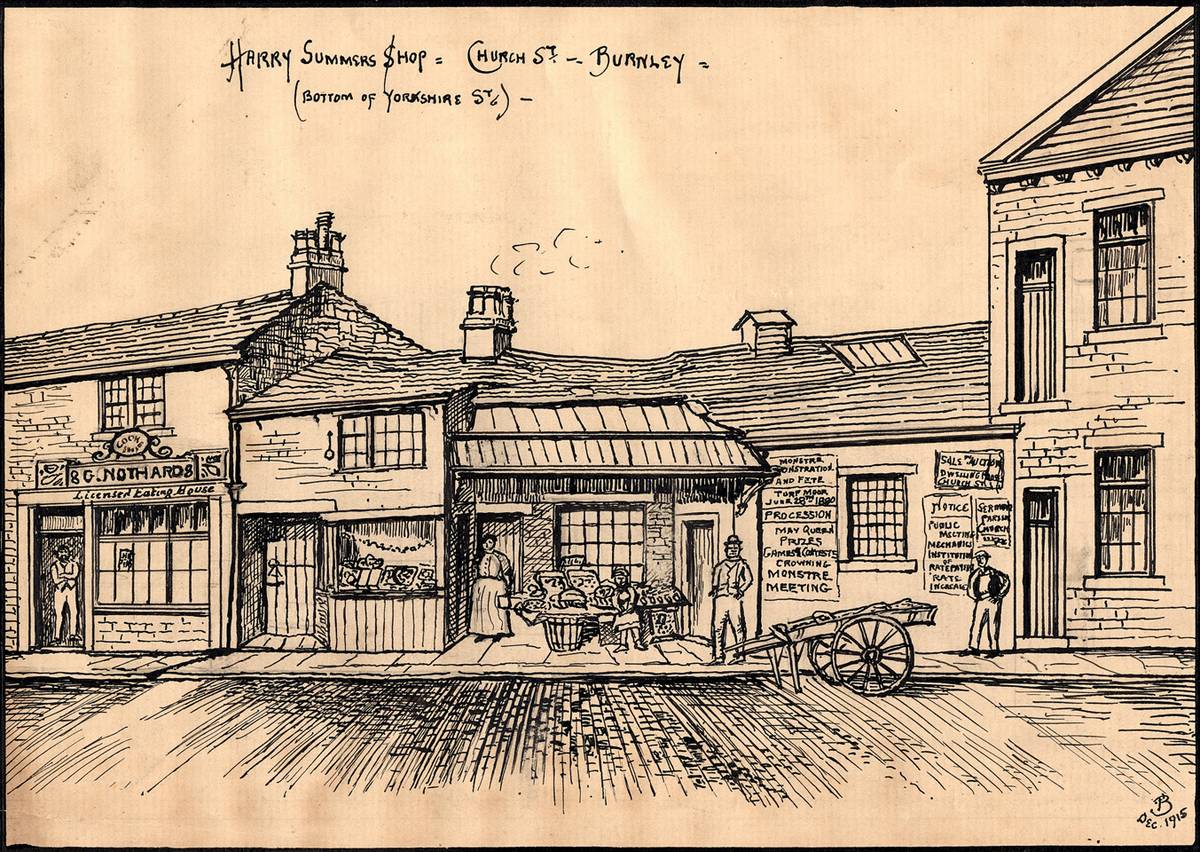 HARRY SUMMERS SHOP = CHURCH ST. - BURNLEY =
(BOTTOM OF YORKSHIRE ST.) -
COOKS
G. NOTHARD
Licensed Eating House
MONSTRE
DEMONSTRATION
AND FETE
TURF MOOR
JUNE 28TH 1880
PROCESSION
MAY QUEEN
PRIZES
GAMES & CONTESTS
CROWNING
MONSTRE
MEETING
SALE BY AUCTION
DWELLING
CHURCH ST.
NOTICE
PUBLIC
MEETING
MECHANICS
INSTITUTION
OF
RATEPAYERS
RATE
INCREASE
SERMONS
PARISH
CHURCH
DEC. 1915